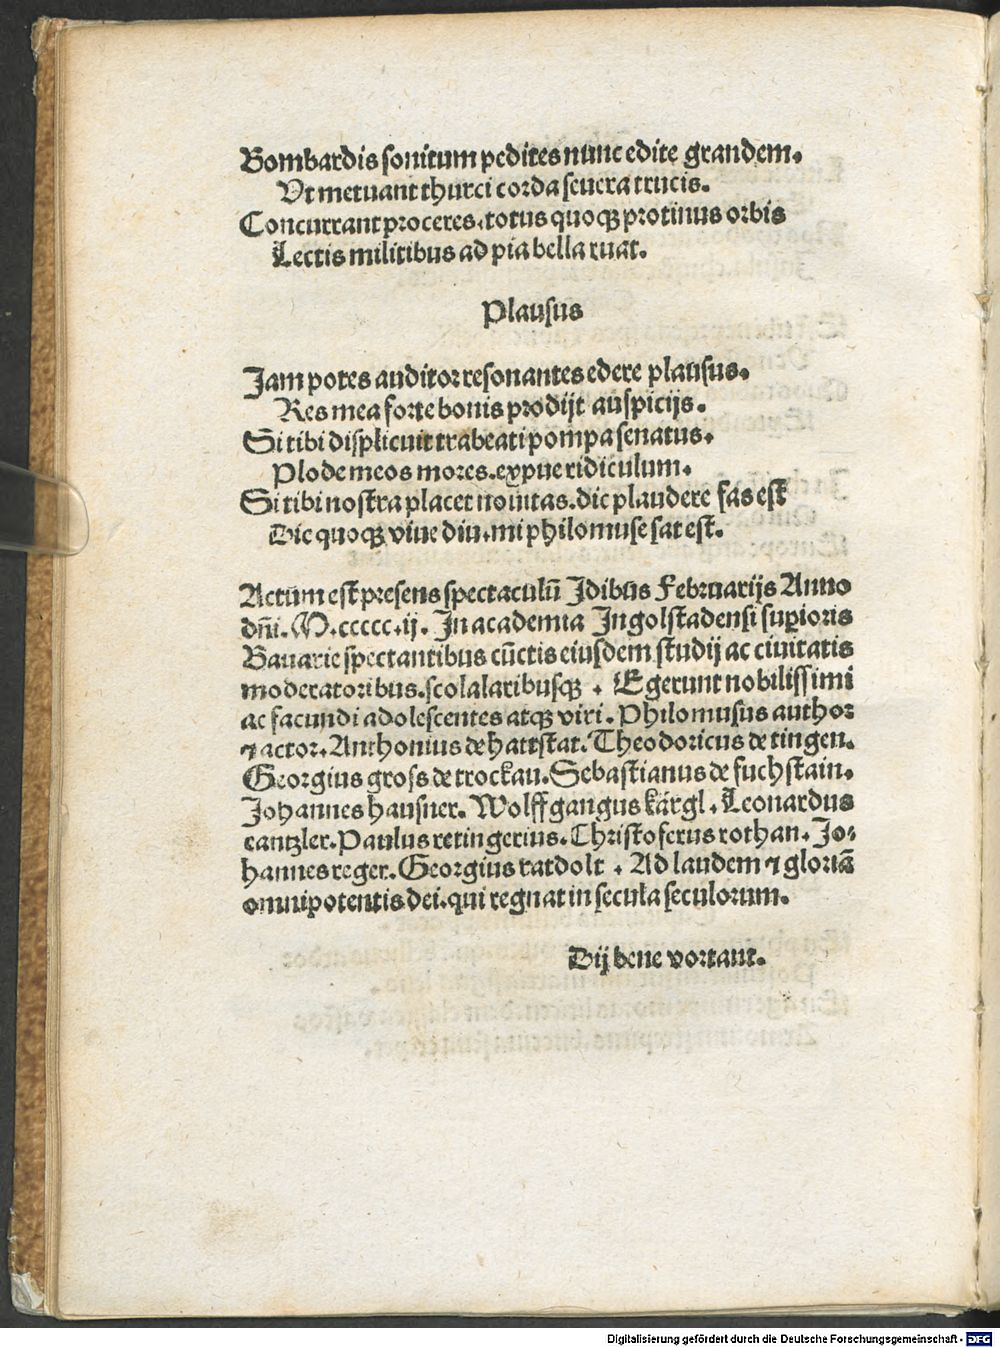 Bombardis sonitum pedites nunc edite grandem.
Vt metuant thurci corda seuera trucis.
Concurrant proceres. totus quoqꝫ protinus orbis
Lectis militibus ad pia bella ruat.
Plausus
Jam potes auditor resonantes edere plausus.
Res mea forte bonis prodijt auspicijs.
Si tibi displicuit trabeati pompa senatus.
Plode meos mores. expue ridiculum.
Si tibi nostra placet nouitas. dic plaudere fas est
Dic quoqꝫ viue diu. mi philomuse sat est.
Actum est presens spectaculū Jdibus Februarijs Anno
dñi. M.ccccc.ij. Jn academia Jngolstadensi supioris
Bauarie spectantibus cūctis eiusdem studij ac ciuitatis
moderatoribus. scolalaribusqꝫ . Egerunt nobilissimi
ac facundi adolescentes atqꝫ viri. Philomusus author
⁊ actor. Anthonius de hattstat. Theodoricus de tingen.
Georgius gross de trockau. Sebastianus de fuchstain.
Johannes hausner. Wolffgangus kärgl. Leonardus
cantzler. Paulus retingerius. Christoferus rothan. Jo-
hannes reger. Georgius ratdolt . Ad laudem ⁊ gloriā
omnipotentis dei. qui regnat in secula seculorum.
Dij bene vortant.
Digitalisierung gefördert durch die Deutsche Forschungsgemeinschaft - DFG